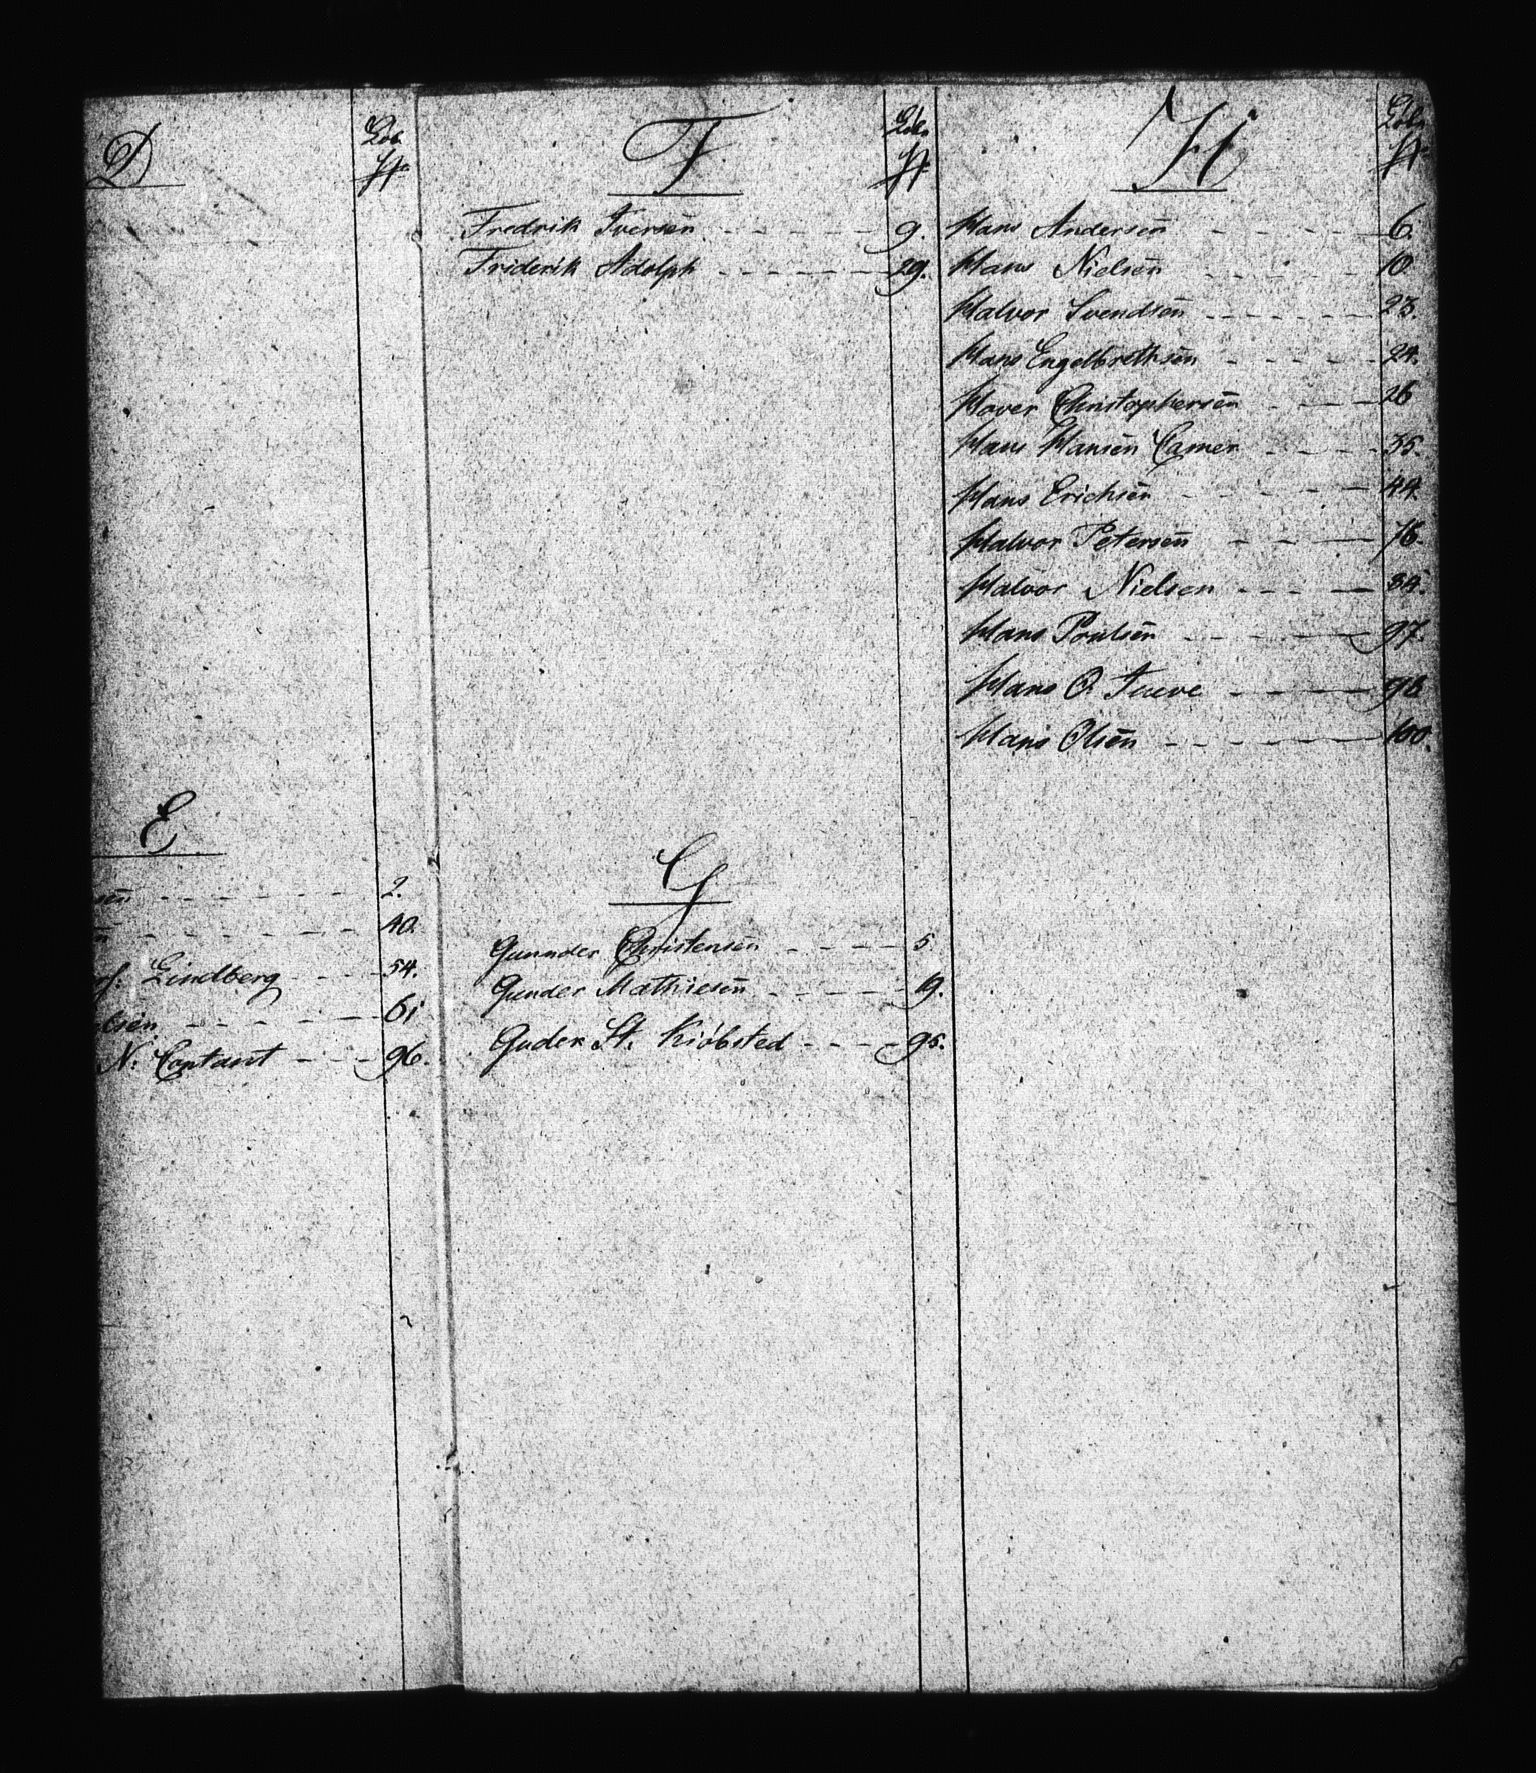 D
Løb
№
E
sen 2.
n 40.
f. Lindberg 54.
lsen 61
N. Contant 96.
F
Løb
№
Fredrik Iversen 9.
Friderik Adolph 29.
G
Gunnder Christensen 5
Gunder Mathiesen 19.
Guder St. Kiöbsted 95.
H
Løb
№
Hans Andersen 6.
Hans Nielsen 10
Halvor Svendsen 23.
Hans Engelbrethsen 24.
Haver Christophersen 26
Hans Hansen Camer 35.
Hans Erichsen 44.
Halvor Petersen 76.
Halvor Nielsen 84.
Hans Poulsen 97
Hans O. 98
Hans Olsen 100.